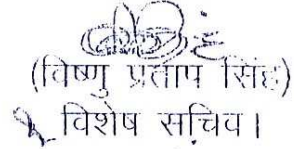 (विष्णु प्रताप सिंह)
विशेष सचिव।